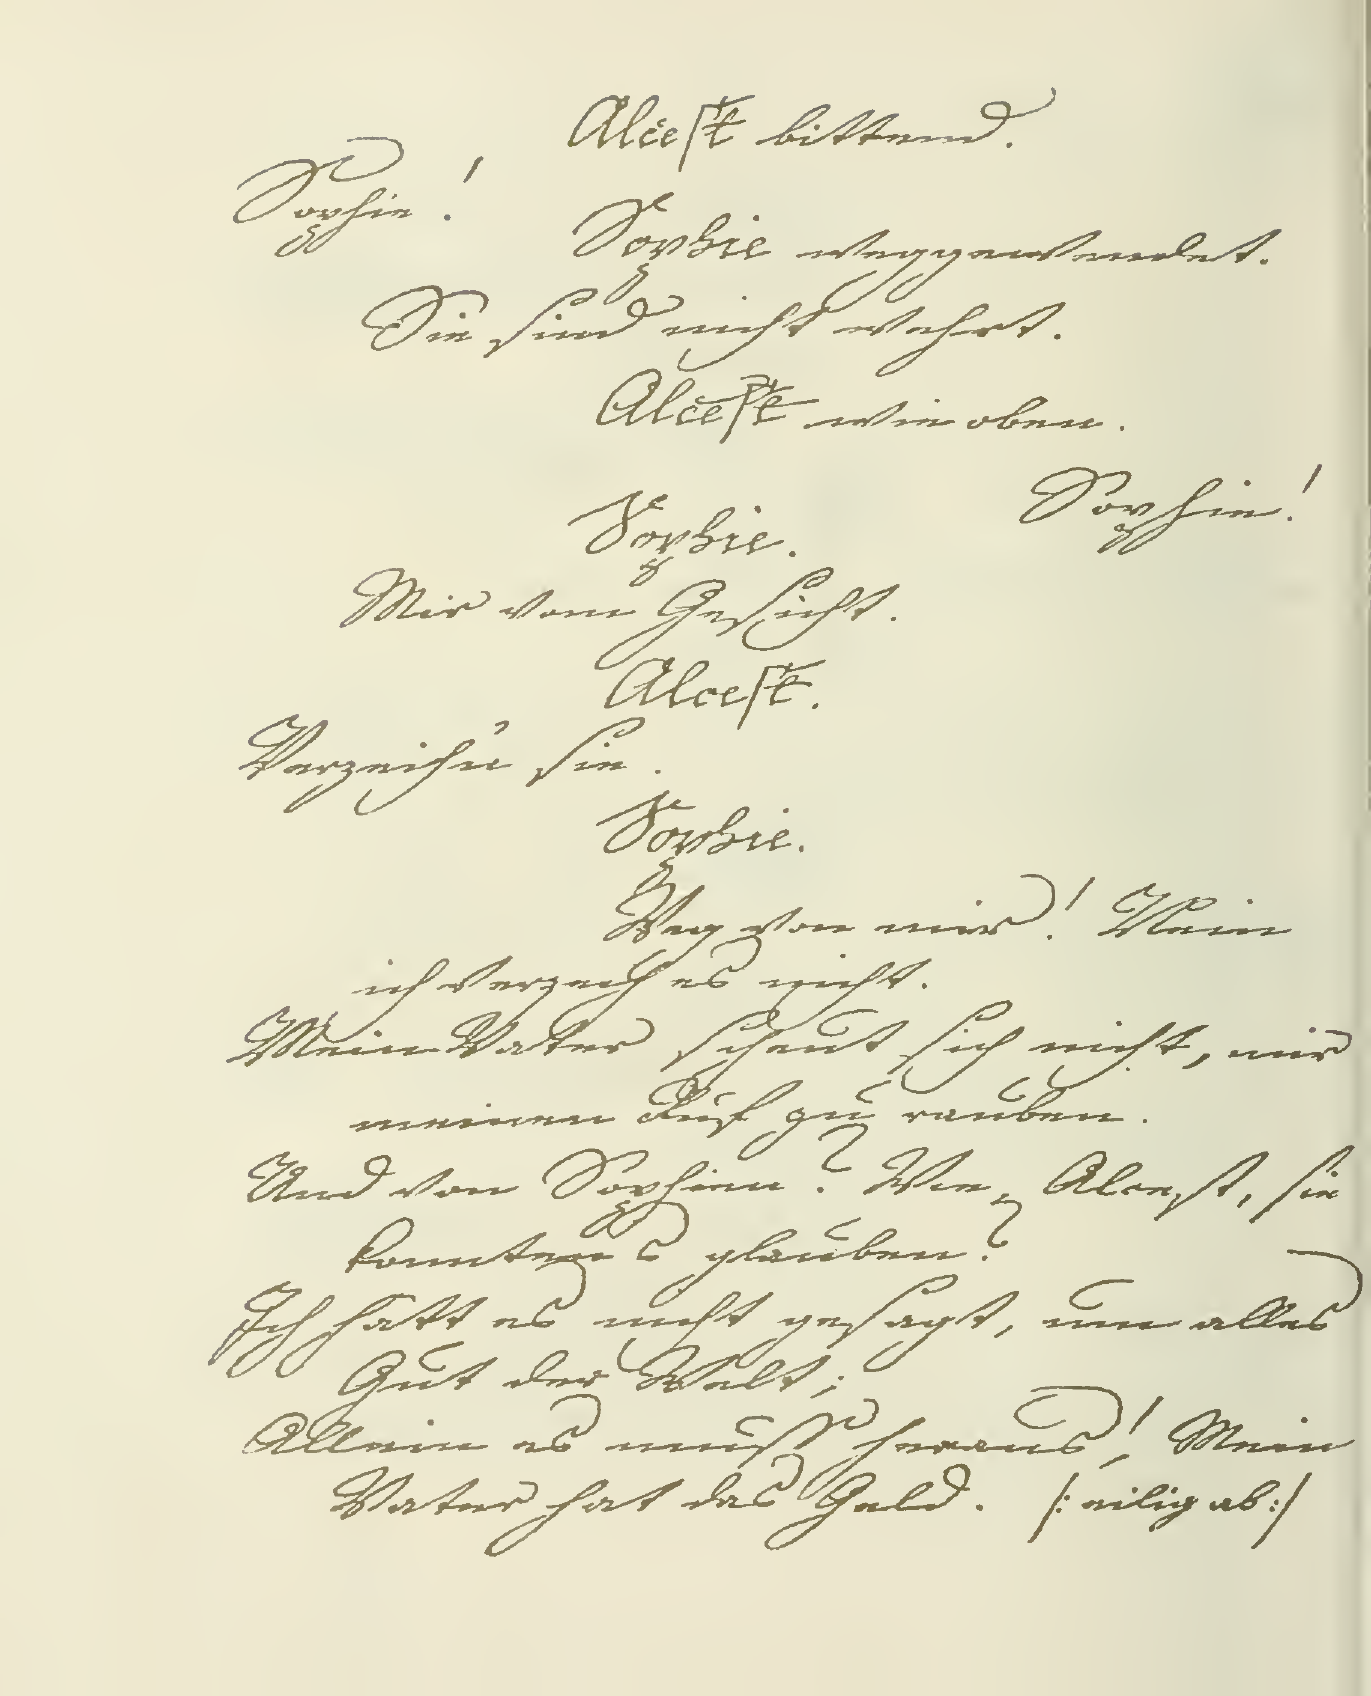 Alcest bittend.
Sophie!
Sophie weggewendet.
Sie sind nicht wehrt.
Alcest wie oben.
Sophie!
Sophie.
Mir vom Gesicht.
Alcest.
Verzeih'n sie.
Sophie.
Weg von mir! Nein
ich verzeih es nicht.
Mein Vater scheut sich nicht, mir
meinen Ruf zu rauben.
Und von Sophien? Wie, Alcest, sie
konnten es glauben?
Ich hatt es nicht gesagt, um alles
Gut der Welt;
Allein es muß heraus! Mein
Vater hat das Geld. /: eilig ab :/